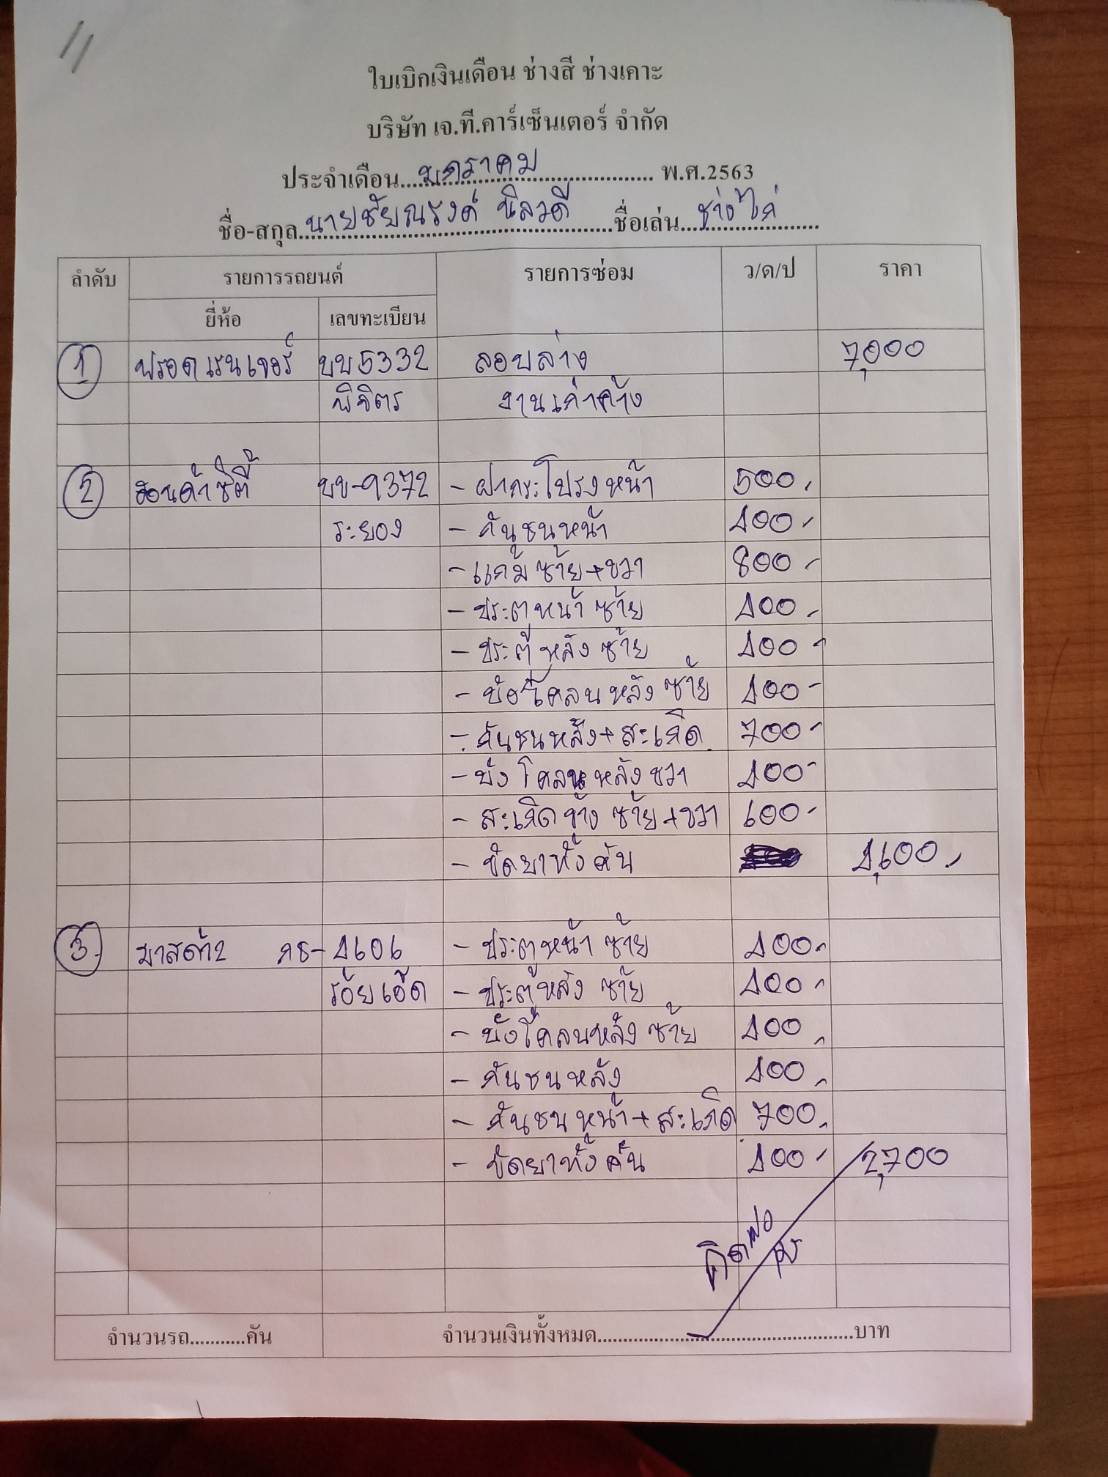 11
ใบเบิกเงินเดือน ช่างสี ช่างเคาะ
บริษัท เจ.ที.คาร์เซ็นเตอร์ จำกัด
ประจำเดือน...มกราคม... พ.ศ.2563
ชื่อ-สกุล...นายชัยณรงค์ นิลวดี...ชื่อเล่น...ช่างไก่...
ลำดับ รายการรถยนต์ รายการซ่อม ว/ด/ป ราคา
ยี่ห้อ เลขทะเบียน
1 ฟรอดเรนเจอร์ บบ5332 ลอบล่าง 7,000
พิจิตร งานเก่าค้าง
2 ฮอนด้าซิตี้ ขข-9372 - ฝากระโปรงหน้า 500.-
ระยอง - กันชนหน้า 400.-
- แก้ม ซ้าย+ขวา 800.-
- ประตูหน้า ซ้าย 400.-
- ประตู หลัง ซ้าย 400-
- บังโคลน หลัง ซ้าย 400-
- กันชนหลัง+สะเกิต 700-
- บังโคลน หลัง ขวา 400-
- สะเกิตข้าง ซ้าย+ขวา 600-
- ขัดยาทั้งคัน 4,600.-
3 มาสด้า2 กธ-4606 - ประตูหน้า ซ้าย 400.-
ร้อยเอ็ด - ประตูหลัง ซ้าย 400.-
- บังโคลนหลัง ซ้าย 400.-
- กันชนหลัง 400.-
- กันชน หน้า+สะเกิต 700.-
- ขัดยาทั้งคัน 400.- 2,700
จำนวนรถ..........คัน จำนวนเงินทั้งหมด..................................................บาท